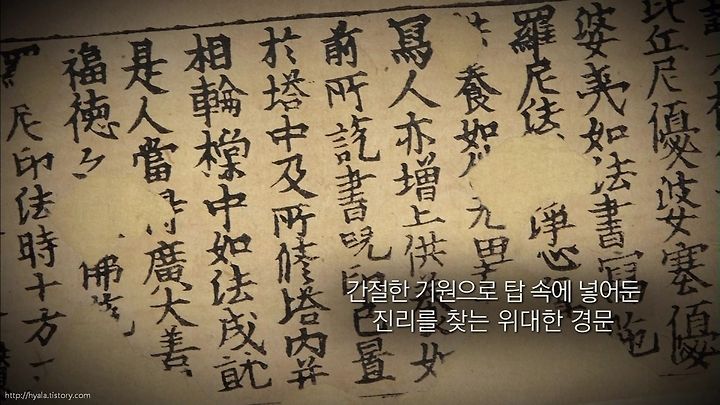 丘尼優婆塞優
婆夷如法書寫陁
羅尼法 淨心
養如
寫人亦增上供養如
前所訖書呪印已置
於塔中及所修塔內并
相輪橖中如法成就
是人當 廣大善
福德 佛
尼印法時十方一
간절한 기원으로 탑 속에 넣어둔
진리를 찾는 위대한 경문
http://hyala.tistory.com